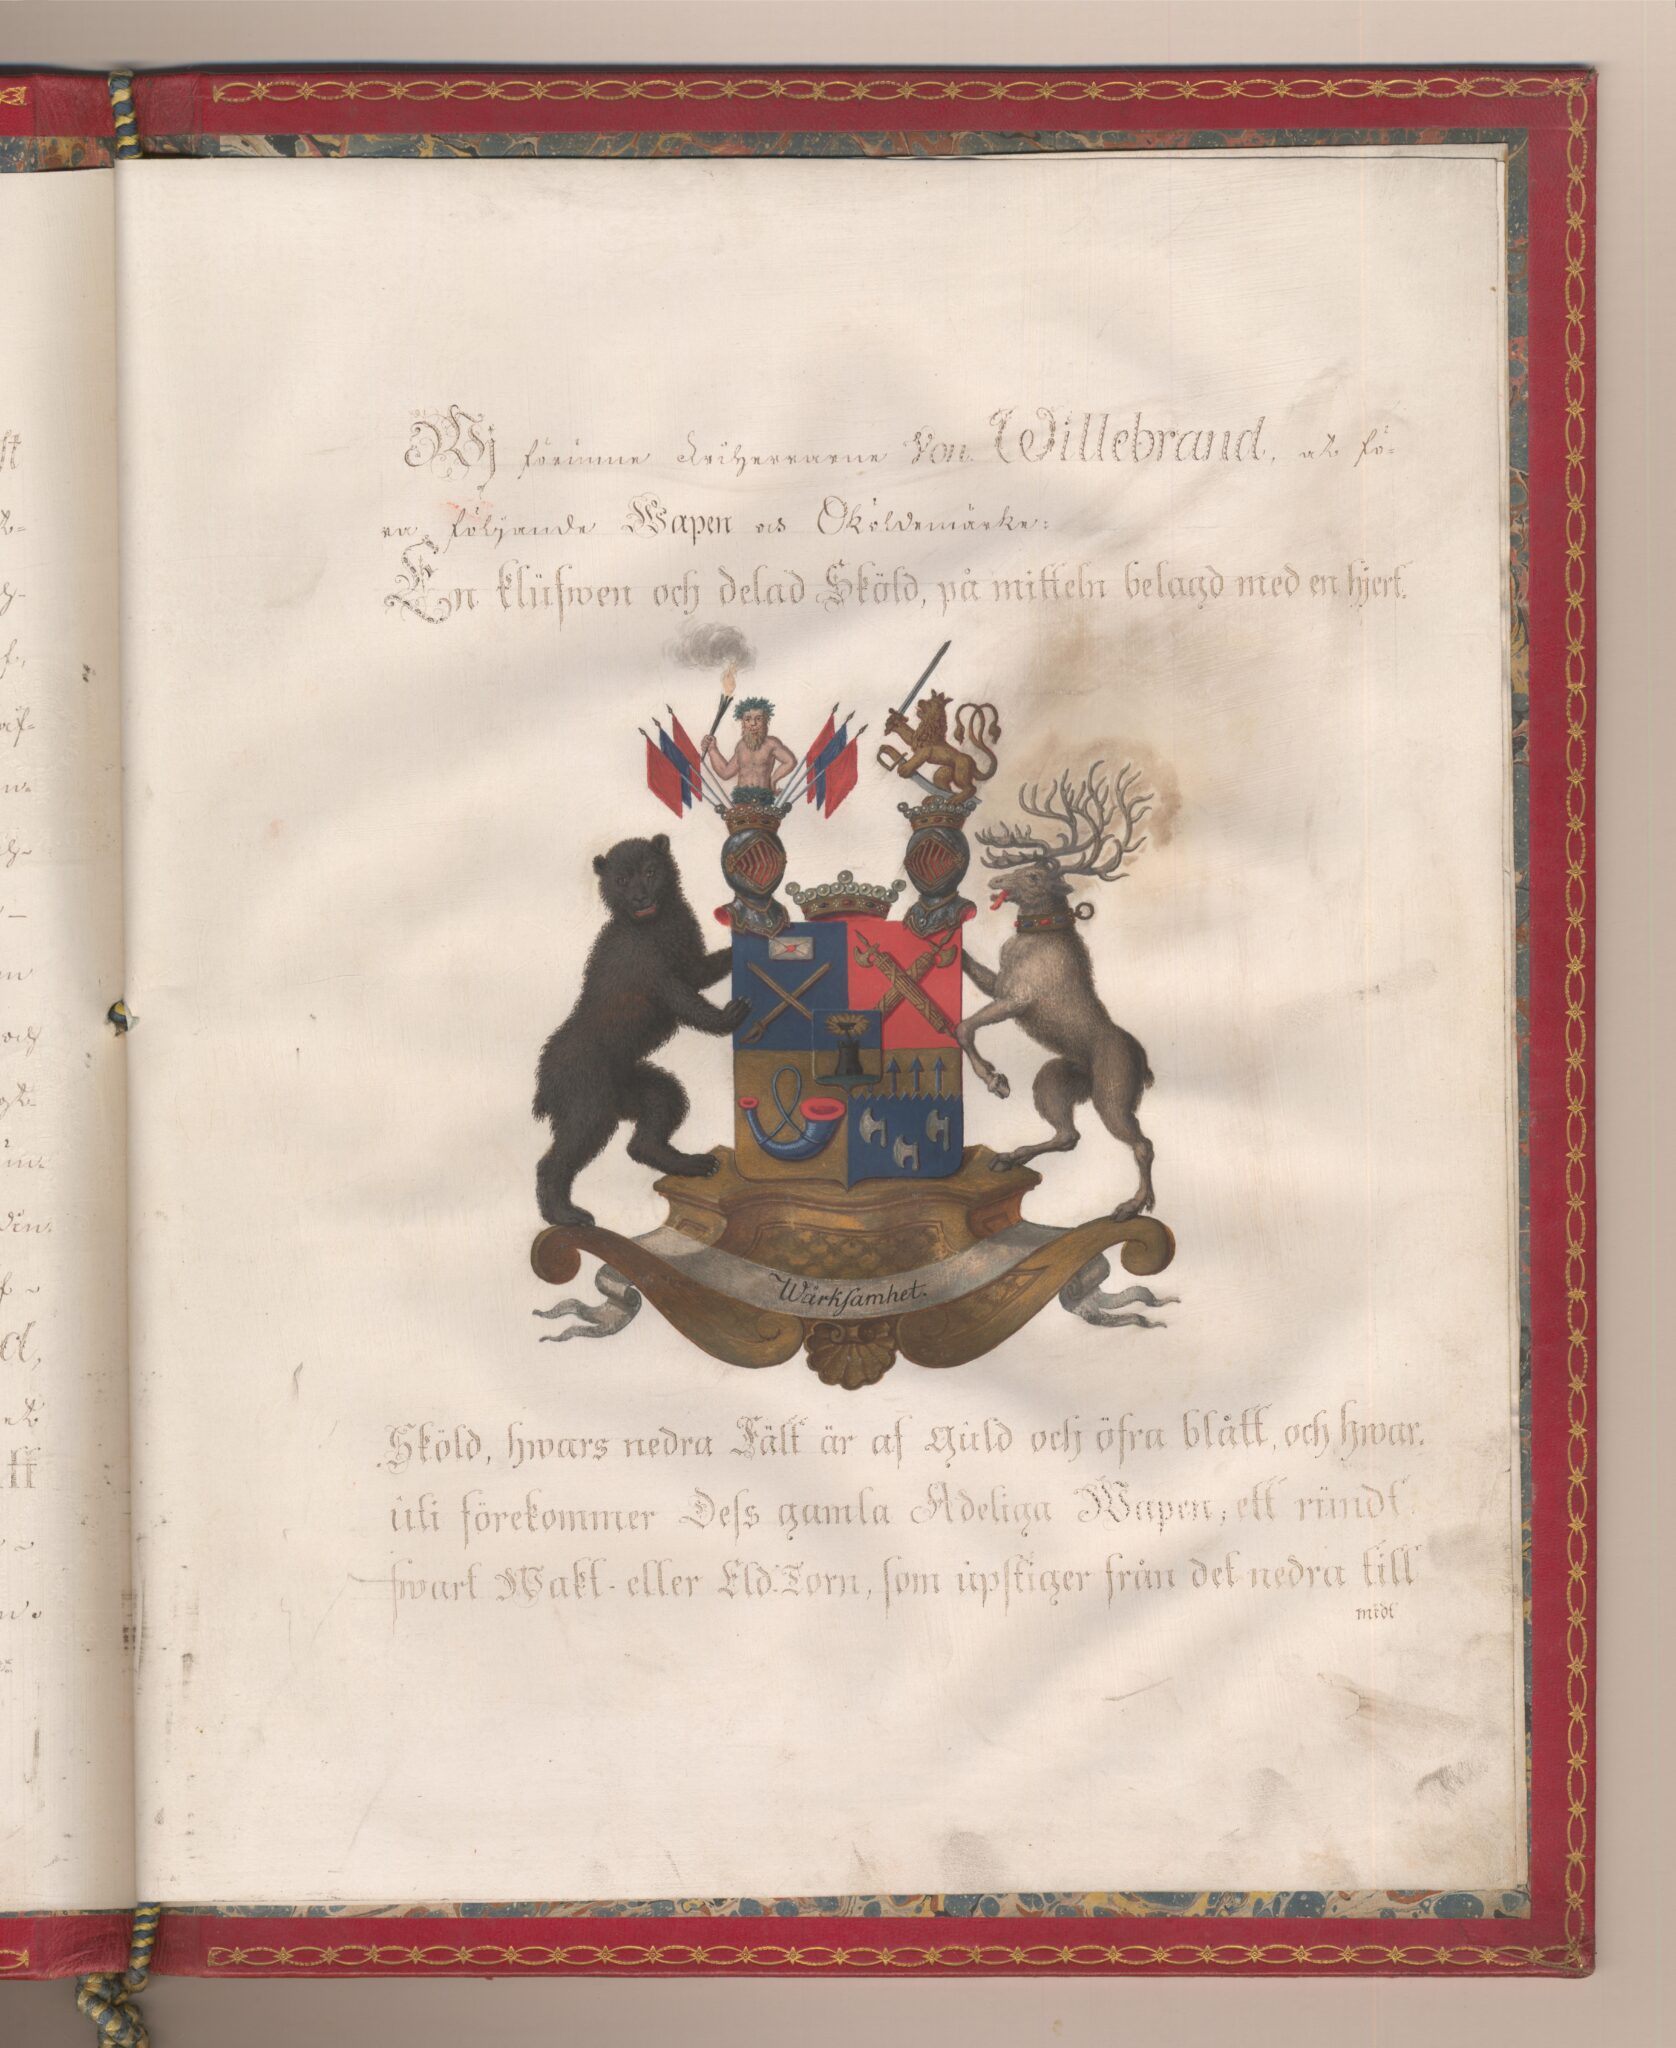 Wj förunne Friherrarne Von Willebrand, at fö-
ra följande Wapen och Sköldemärke:
En klüfwen och delad Sköld, på mitteln belagd med en hjert.
Wärksamhet.
Sköld, hwars nedra Fält är af Guld och öfra blått, och hwar.
uti förekommer Dess gamla Adeliga Wapen, ett rundt
swart Wakt- eller Eld-Torn, som upstiger från det nedra till
midt